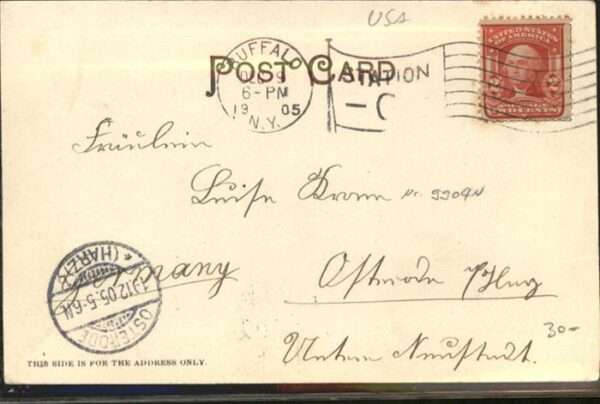 USA
POST CARD
BUFFALO
DEC 9
6-PM
19 05
N.Y.
STATION
C
UNITED STATES
OF AMERICA
2 2
TWO CENTS
Fräulein
Luise Krone
Nr. 9904N
Germany
Osterode /Harz
Untere Neustadt.
OSTERODE
(HARZ)
12.05.5-6N
30-
THIS SIDE IS FOR THE ADDRESS ONLY.